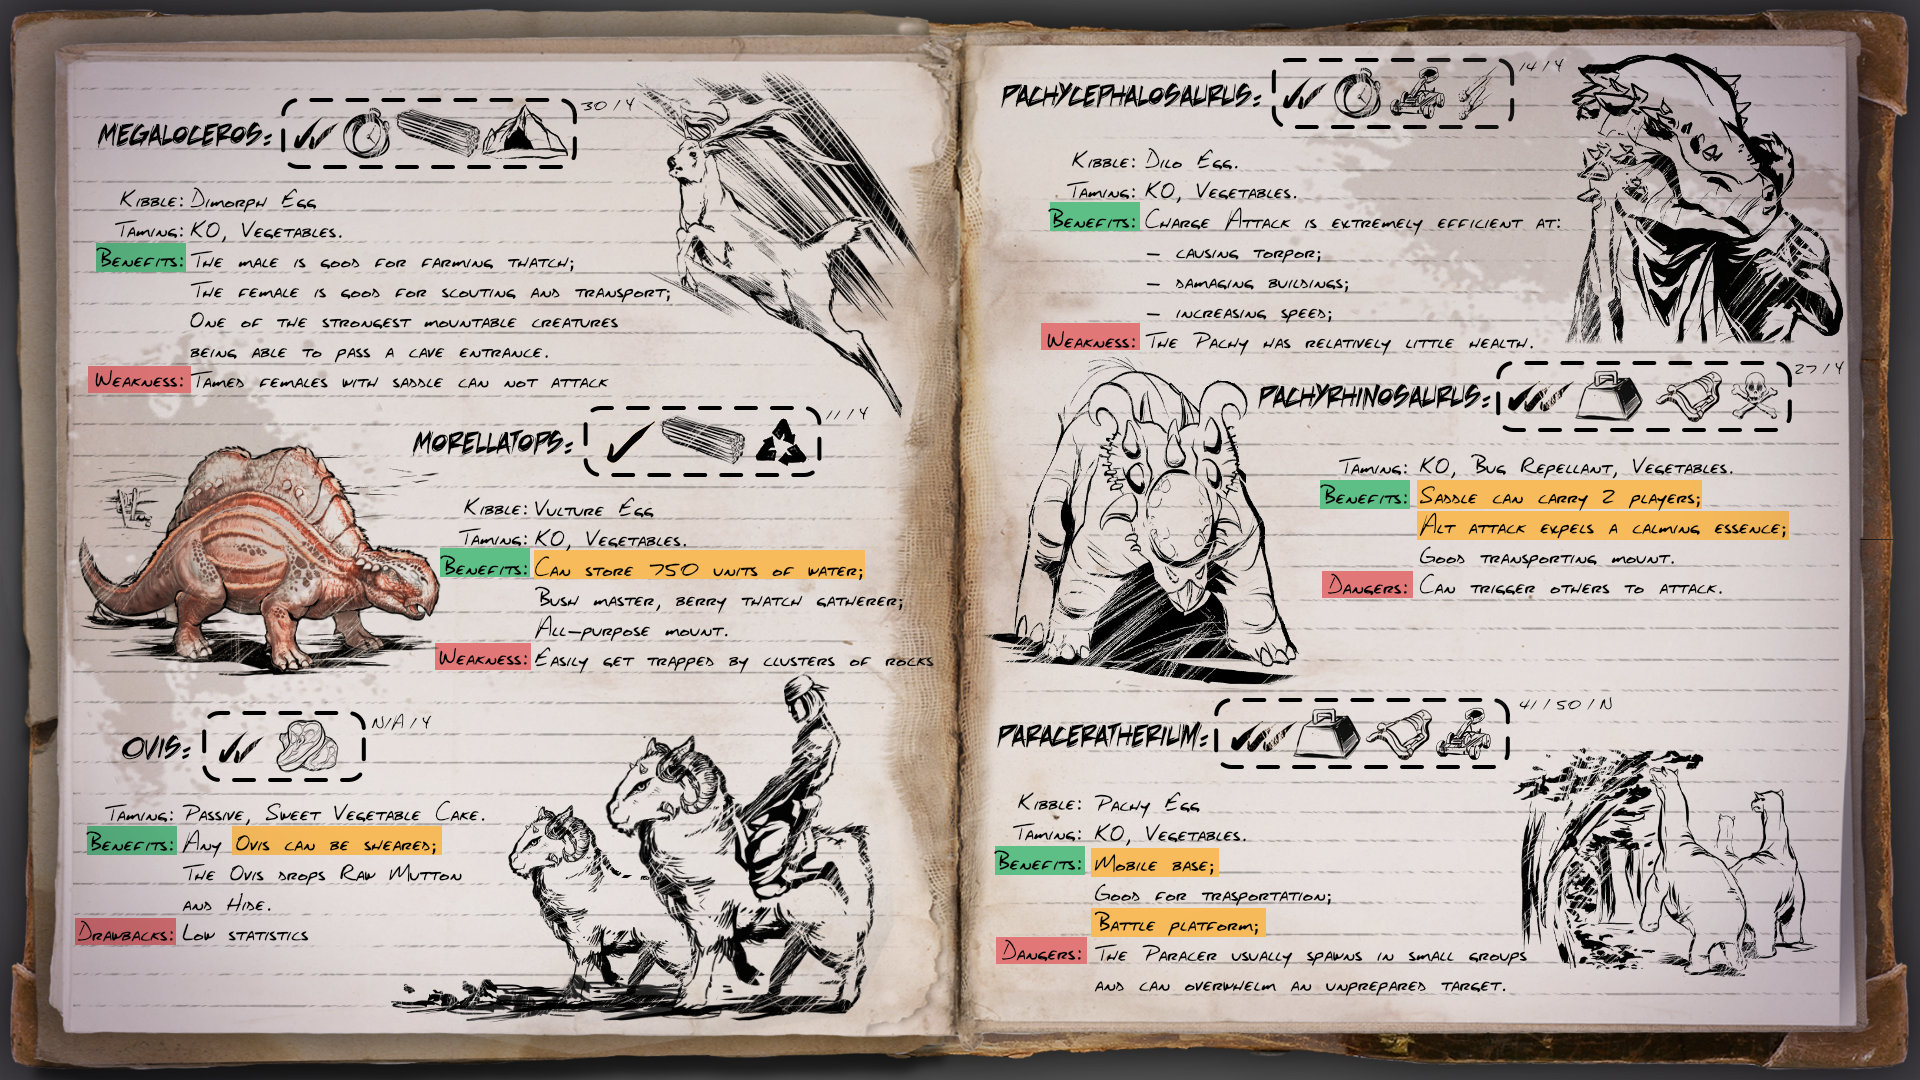 MEGALOCEROS:
30 / Y
KIBBLE: DIMORPH EGG
TAMING: KO, VEGETABLES.
BENEFITS: THE MALE IS GOOD FOR FARMING THATCH;
THE FEMALE IS GOOD FOR SCOUTING AND TRANSPORT;
ONE OF THE STRONGEST MOUNTABLE CREATURES
BEING ABLE TO PASS A CAVE ENTRANCE.
WEAKNESS: TAMED FEMALES WITH SADDLE CAN NOT ATTACK
MORELLATOPS:
11 / Y
KIBBLE: VULTURE EGG
TAMING: KO, VEGETABLES.
BENEFITS: CAN STORE 750 UNITS OF WATER;
BUSH MASTER, BERRY THATCH GATHERER;
ALL-PURPOSE MOUNT.
WEAKNESS: EASILY GET TRAPPED BY CLUSTERS OF ROCKS
OVIS:
N/A / Y
TAMING: PASSIVE, SWEET VEGETABLE CAKE.
BENEFITS: ANY OVIS CAN BE SHEARED;
THE OVIS DROPS RAW MUTTON
AND HIDE.
DRAWBACKS: LOW STATISTICS
PACHYCEPHALOSAURUS:
14 / Y
KIBBLE: DILO EGG.
TAMING: KO, VEGETABLES.
BENEFITS: CHARGE ATTACK IS EXTREMELY EFFICIENT AT:
– CAUSING TORPOR;
– DAMAGING BUILDINGS;
– INCREASING SPEED;
WEAKNESS: THE PACHY HAS RELATIVELY LITTLE HEALTH.
PACHYRHINOSAURUS:
27 / Y
TAMING: KO, BUG REPELLANT, VEGETABLES.
BENEFITS: SADDLE CAN CARRY 2 PLAYERS;
ALT ATTACK EXPELS A CALMING ESSENCE;
GOOD TRANSPORTING MOUNT.
DANGERS: CAN TRIGGER OTHERS TO ATTACK.
PARACERATHERIUM:
41 / 50 / N
KIBBLE: PACHY EGG
TAMING: KO, VEGETABLES.
BENEFITS: MOBILE BASE;
GOOD FOR TRASPORTATION;
BATTLE PLATFORM;
DANGERS: THE PARACER USUALLY SPAWNS IN SMALL GROUPS
AND CAN OVERWHELM AN UNPREPARED TARGET.